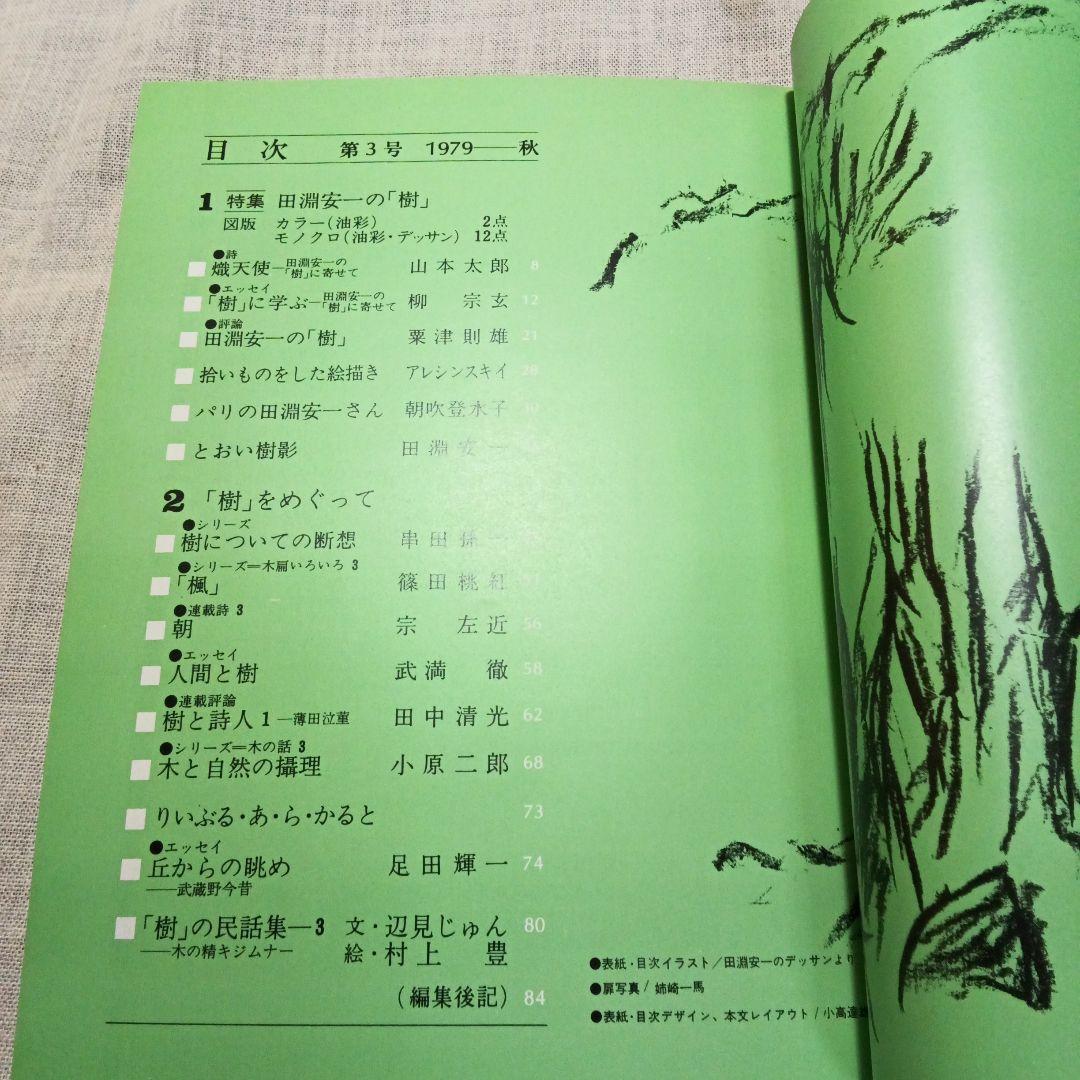 目次 第3号 1979――秋
1 特集 田淵安一の「樹」
図版 カラー(油彩) 2点
モノクロ(油彩・デッサン) 12点
●詩
熾天使―田淵安一の「樹」に寄せて 山本太郎 8
●エッセイ
「樹」に学ぶ―田淵安一の「樹」に寄せて 柳 宗玄 12
●評論
田淵安一の「樹」 粟津則雄 21
拾いものをした絵描き アレシンスキイ 28
パリの田淵安一さん 朝吹登水子 30
とおい樹影 田淵安一
2 「樹」をめぐって
●シリーズ
樹についての断想 串田孫一
●シリーズ=木扁いろいろ 3
「楓」 篠田桃紅 51
●連載詩 3
朝 宗 左近 56
●エッセイ
人間と樹 武満 徹 58
●連載評論
樹と詩人 1 ―薄田泣菫 田中清光 62
●シリーズ=木の話 3
木と自然の攝理 小原二郎 68
りいぶる・あ・ら・かると 73
●エッセイ
丘からの眺め 足田輝一 74
――武蔵野今昔
「樹」の民話集―3 文・辺見じゅん 80
――木の精キジムナー 絵・村上 豊
(編集後記) 84
●表紙・目次イラスト/田淵安一のデッサンより
●扉写真/ 姉崎一馬
●表紙・目次デザイン、本文レイアウト/小高達雄